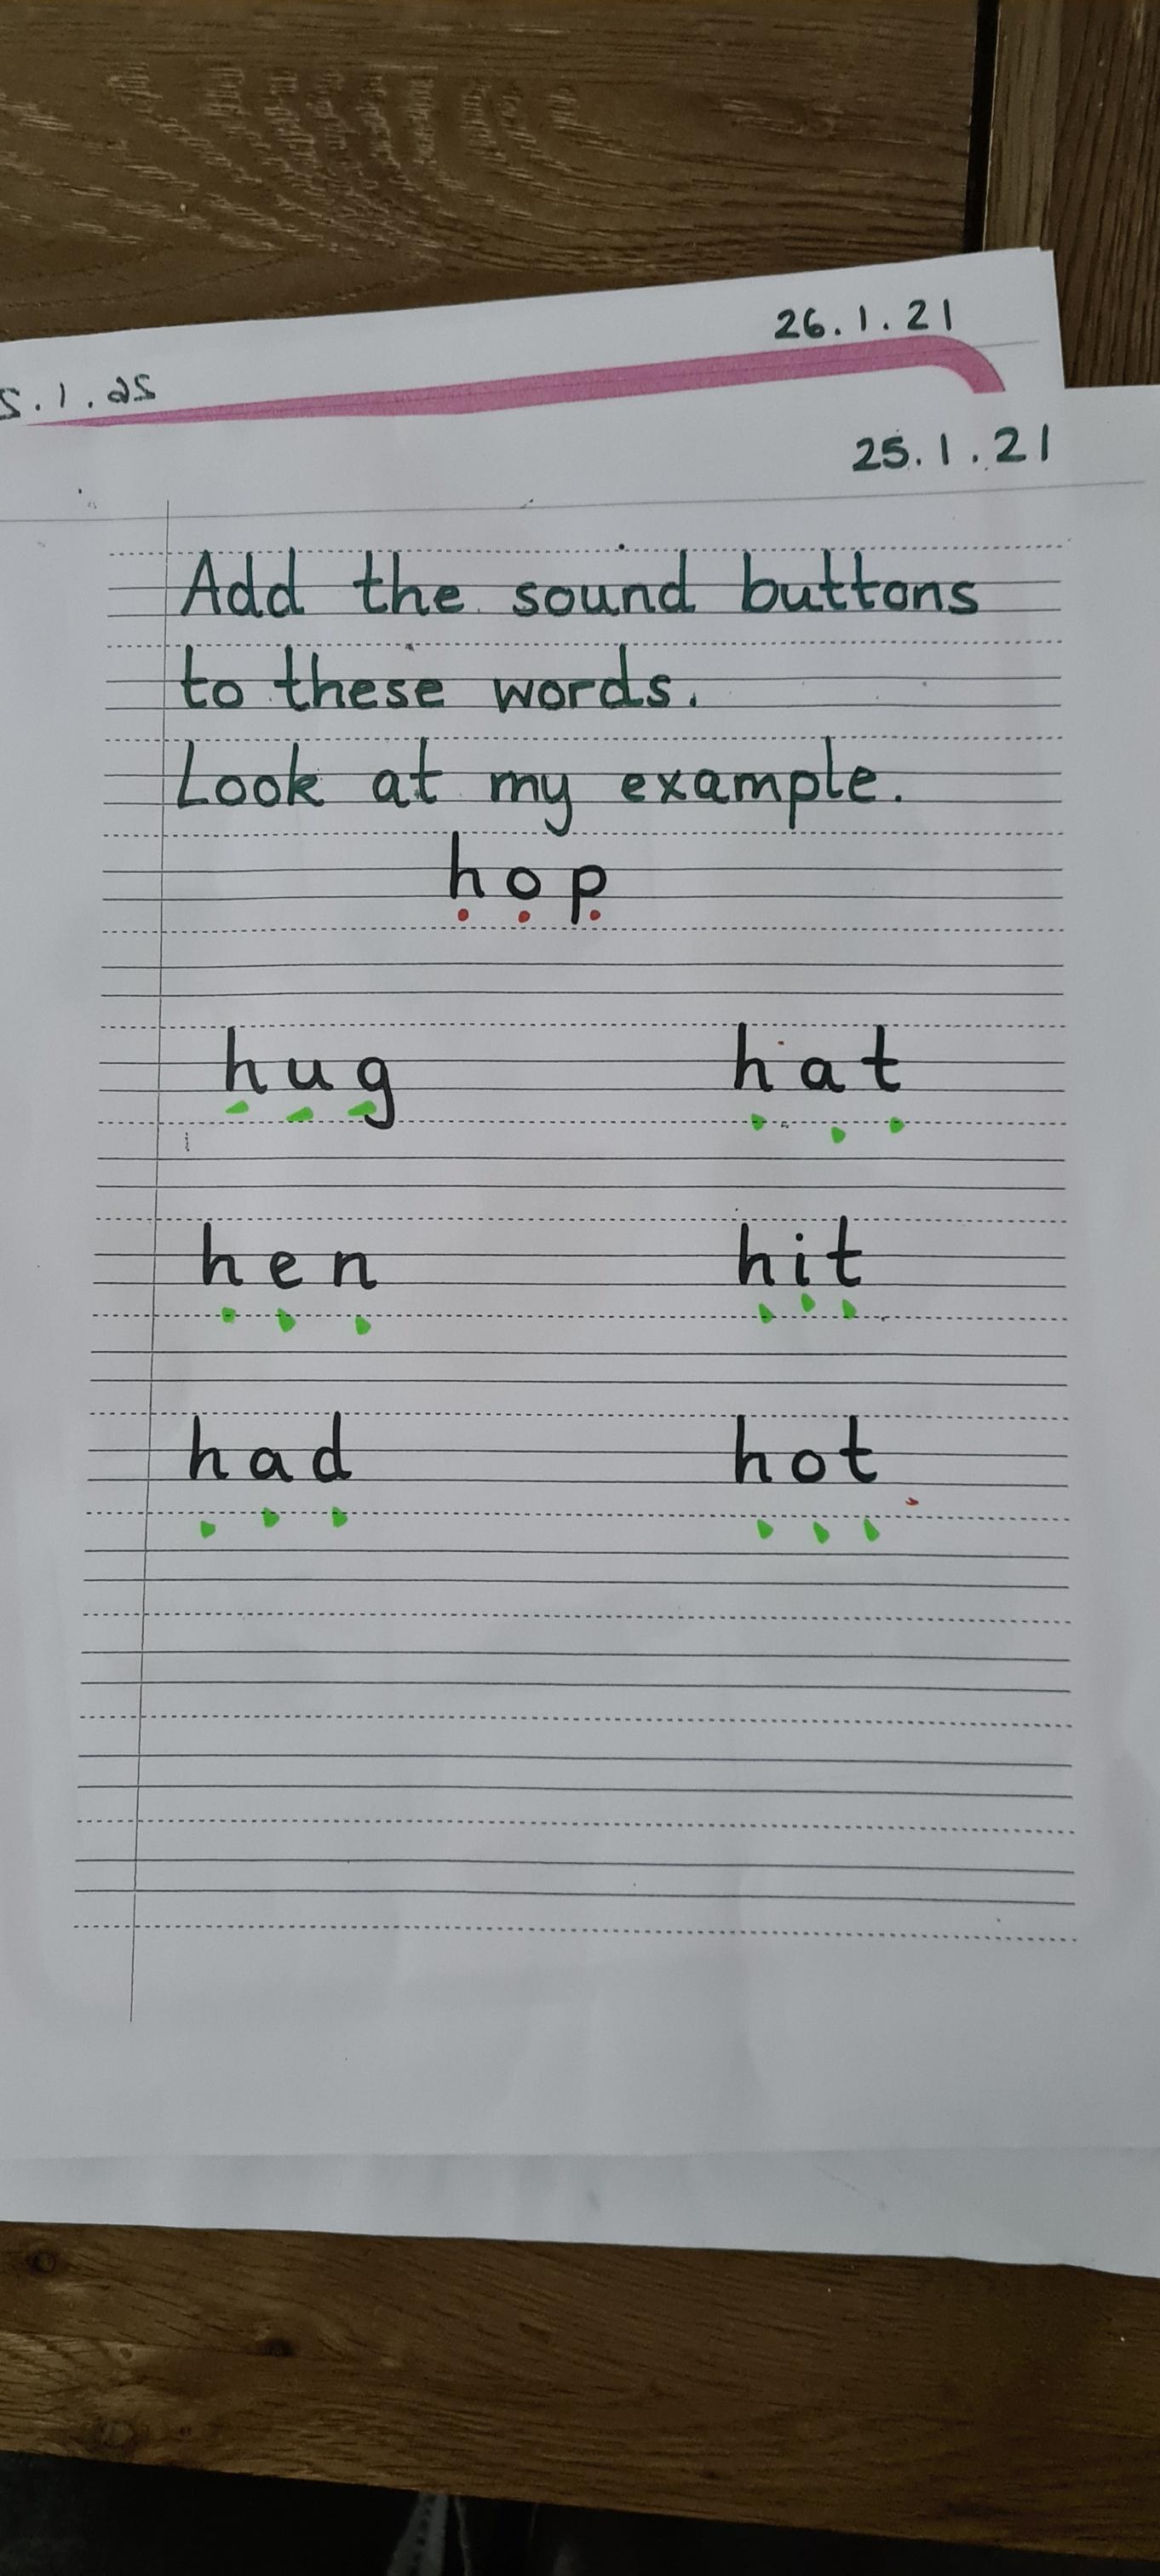 26.1.21
5.1.25
25.1.21
Add the sound buttons
to these words.
Look at my example.
hop
hug hat
hen hit
had hot